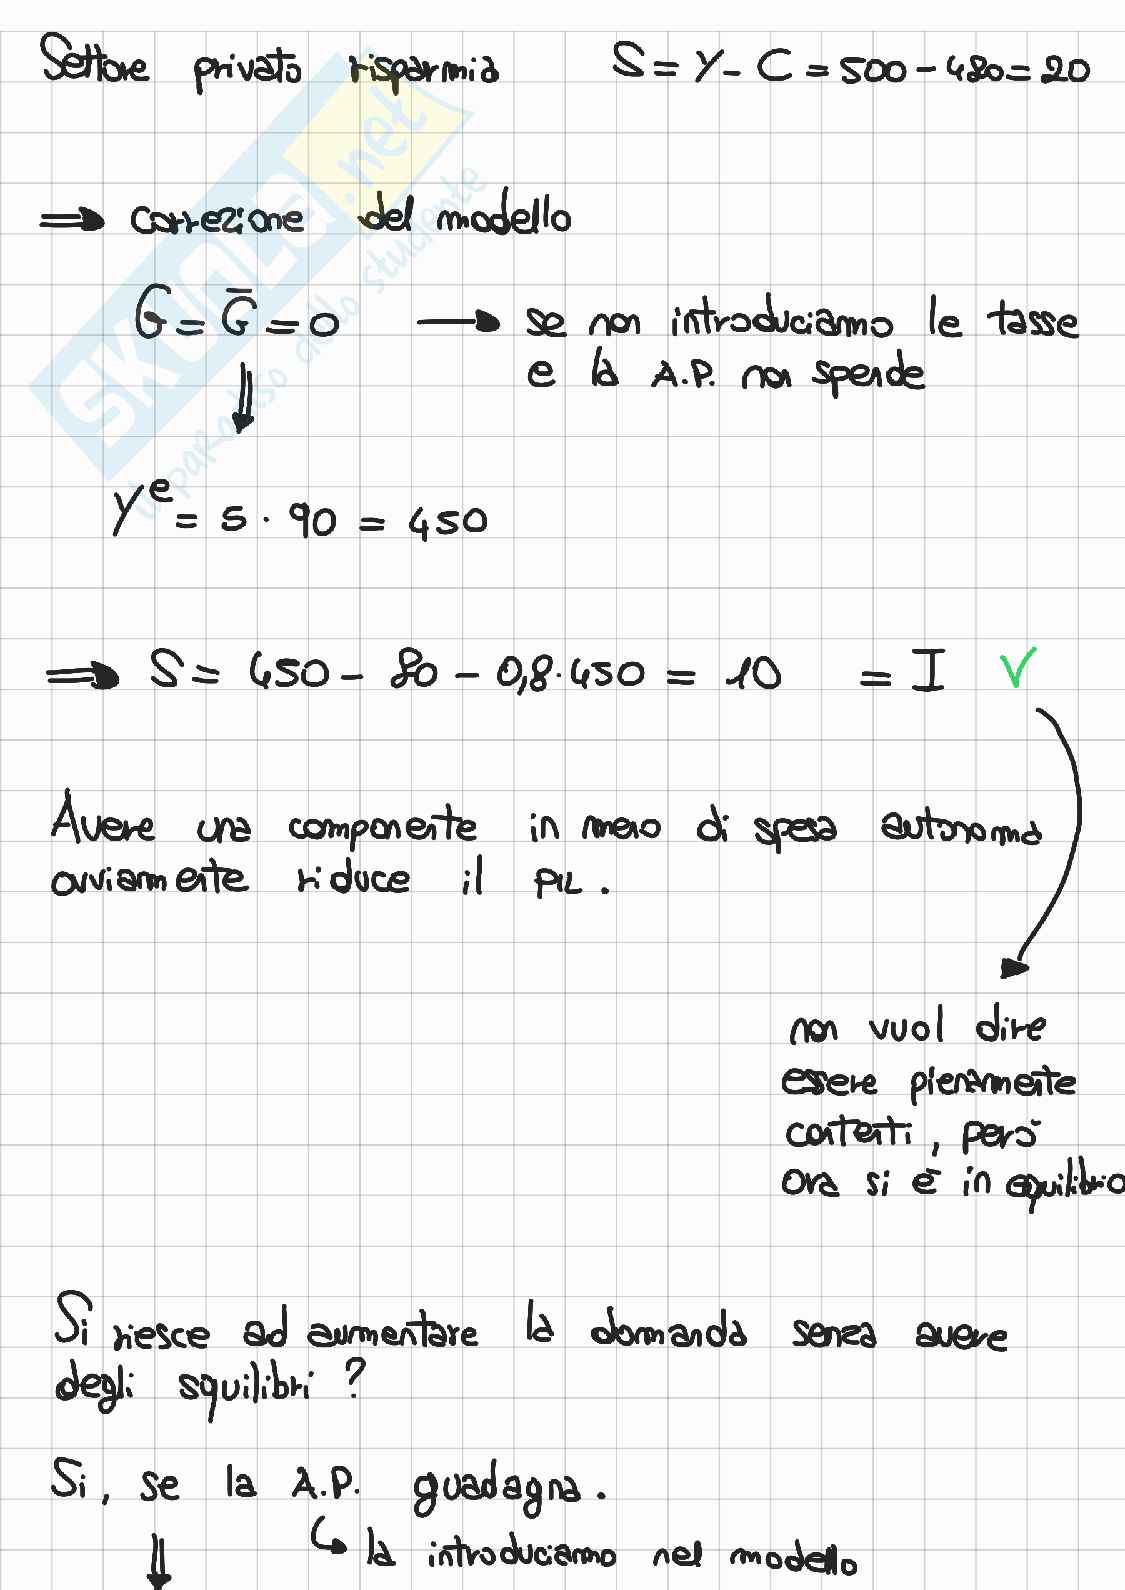 Settore privato risparmia S = Y - C = 500 - 480 = 20
⇒ correzione del modello
G = G̅ = 0 → se non introduciamo le tasse
e la A.P. non spende
⇓
Yᵉ = 5 · 90 = 450
⇒ S = 450 - 80 - 0,8 · 450 = 10 = I √
Avere una componente in meno di spesa autonoma
ovviamente riduce il PIL.
non vuol dire
essere pienamente
contenti, però
ora si è in equilibrio
Si riesce ad aumentare la domanda senza avere
degli squilibri?
Si, se la A.P. guadagna.
↳ la introduciamo nel modello
⇓
SKUOLA.net
il paradiso dello studente